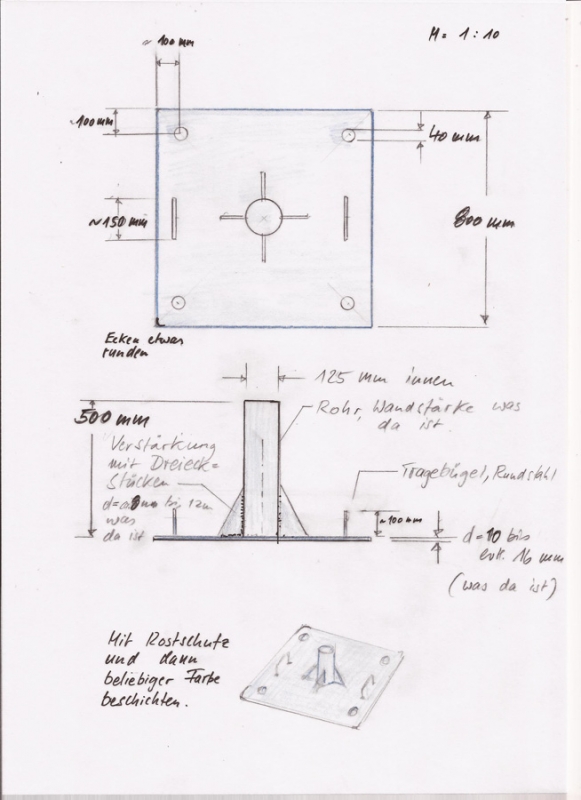 M = 1 : 10
~ 100 mm
~100mm
40 mm
~150 mm
800 mm
Ecken etwas
runden
125 mm innen
500 mm
Rohr, Wandstärke was
da ist.
Verstärkung
mit Dreieck=
Stücken
bis 12m
was
da ist
Tragebügel, Rundstahl
~100mm
d=10 bis
evt. 16 mm
(was da ist)
Mit Rostschutz
und dann
beliebiger Farbe
beschichten.